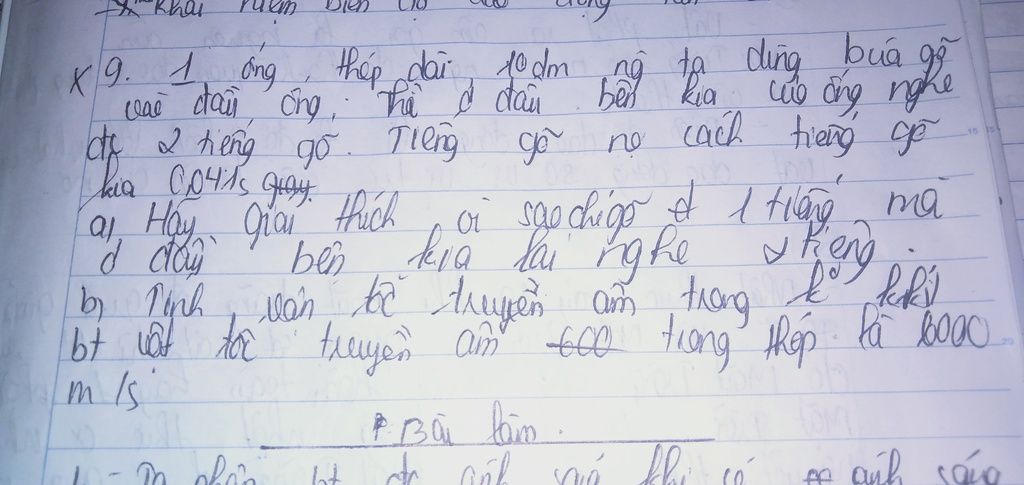 * khái niệm
x 9. 1 ống, thép dài, 10dm ng ta dùng búa gõ
vào đầu ống, Thì ở đầu bên kia của ống nghe
đc 2 tiếng gõ. Tiếng gõ nọ cách tiếng gõ
kia 0,041s giây.
a, Hãy giải thích vì sao chỉ gõ 1 tiếng mà
ở đầu bên kia lại nghe 2 tiếng.
b, Tính vận tốc truyền âm trong k kkí
bt vật tốc truyền âm 600 trong thép là 6000
m/s
Bài làm.
1 - Ta nhận bt đc ánh sáng khi có ánh sáng